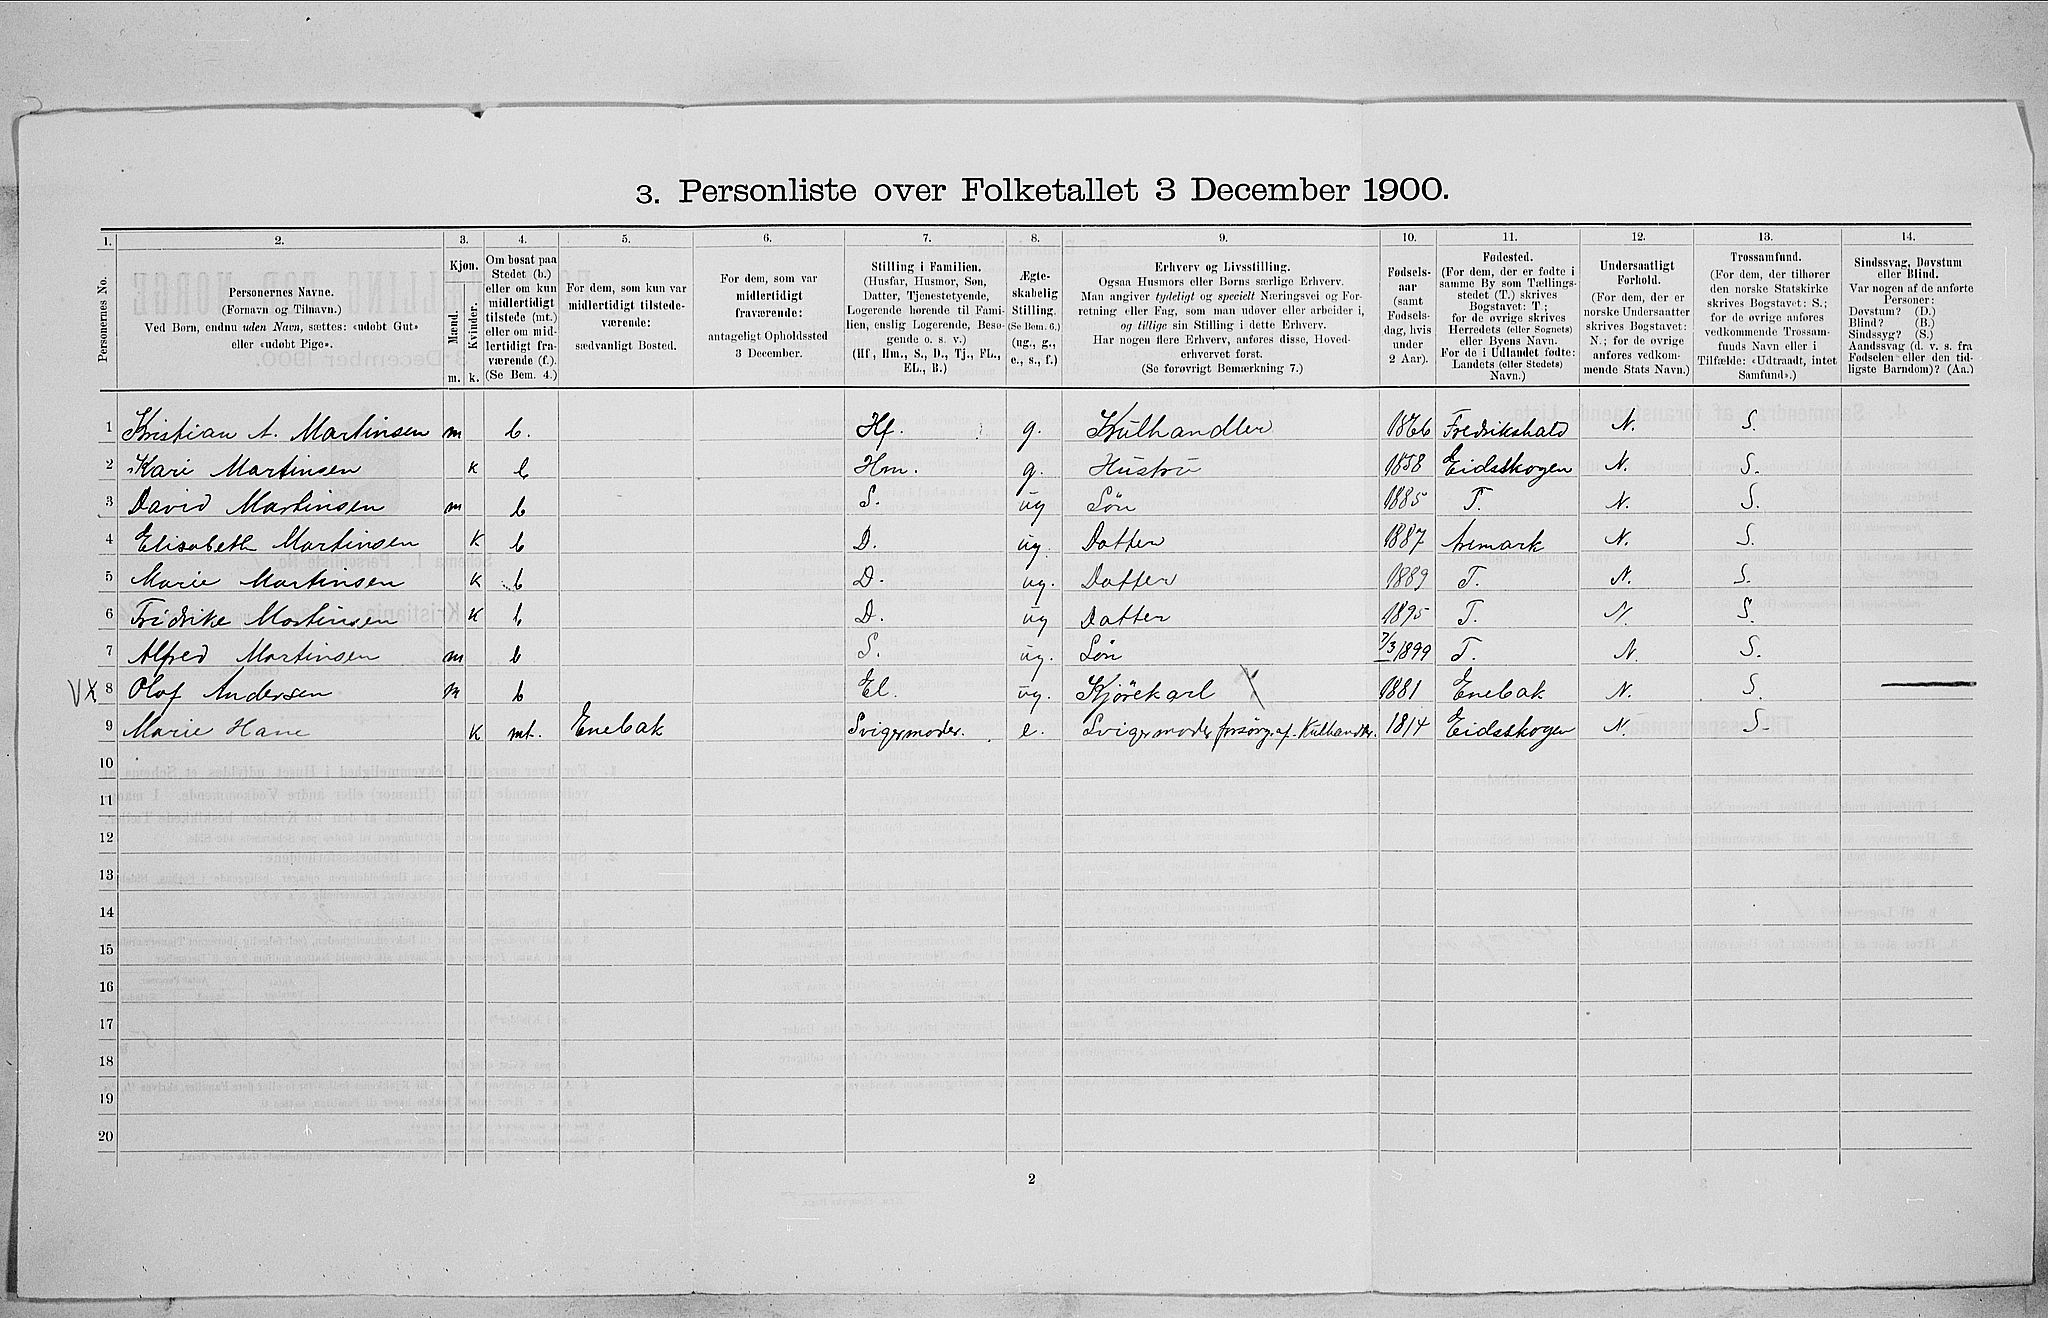 3. Personliste over Folketallet 3 December 1900.
1. 2. 3. 4. 5. 6. 7. 8. 9. 10. 11. 12. 13. 14.
Personernes No.
Personernes Navne.
(Fornavn og Tilnavn.)
Ved Børn, endnu uden Navn, sættes: «udøbt Gut»
eller «udøbt Pige».
Kjøn.
Mænd. Kvinder.
m. k.
Om bosat paa
Stedet (b.)
eller om kun
midlertidigt
tilstede (mt.)
eller om mid-
lertidigt fra-
værende (f.).
(Se Bem. 4.)
For dem, som kun var
midlertidigt tilstede-
værende:
sædvanligt Bosted.
For dem, som var
midlertidigt
fraværende:
antageligt Opholdssted
3 December.
Stilling i Familien.
(Husfar, Husmor, Søn,
Datter, Tjenestetyende,
Logerende hørende til Fami-
lien, enslig Logerende, Besø-
gende o. s. v.)
(Hf., Hm., S., D., Tj., FL.,
EL., B.)
Ægte-
skabelig
Stilling.
(Se Bem. 6.)
(ug., g.,
e., s., f.)
Erhverv og Livsstilling.
Ogsaa Husmors eller Børns særlige Erhverv.
Man angiver tydeligt og specielt Næringsvei og For-
retning eller Fag, som man udøver eller arbeider i,
og tillige sin Stilling i dette Erhverv.
Har nogen flere Erhverv, anføres disse, Hoved-
erhvervet først.
(Se forøvrigt Bemærkning 7.)
Fødsels-
aar
(samt
Fødsels-
dag, hvis
under
2 Aar).
Fødested.
(For dem, der er fødte i
samme By som Tællings-
stedet (T.) skrives
Bogstavet: T ;
for de øvrige skrives
Herredets (eller Sognets)
eller Byens Navn.
For de i Udlandet fødte:
Landets (eller Stedets)
Navn.)
Undersaatligt
Forhold.
(For dem, der er
norske Undersaatter
skrives Bogstavet:
N.; for de øvrige
anføres vedkom-
mende Stats Navn.)
Trossamfund.
(For dem, der tilhører
den norske Statskirke
skrives Bogstavet: S.;
for de øvrige anføres
vedkommende Trossam-
funds Navn eller i
Tilfælde: «Udtraadt, intet
Samfund».)
Sindssvag, Døvstum
eller Blind.
Var nogen af de anførte
Personer:
Døvstum? (D.)
Blind? (B.)
Sindssyg? (S.)
Aandssvag (d. v. s. fra
Fødselen eller den tid-
ligste Barndom)? (Aa.)
1 Kristian A. Martinsen m b. Hf. g. Kulhandler 1866 Fredrikshald N. S.
2 Kari Martinsen k b Hm. g. Hustru 1858 Eidsskogen N. S.
3 David Martinsen m b S. ug Søn 1885 T. N. S.
4 Elisabeth Martinsen K b D. ug. Datter 1887 Aremark N. S.
5 Marie Martinsen K b D. ug. Datter 1889 T. N. S.
6 Fridrike Martinsen K b D. ug Datter 1895 T. N. S.
7 Alfred Martinsen m b S. ug. Søn 7/3 1899 T. N. S.
VX 8 Olof Andersen m b El. ug. Kjørekarl X 1881 Enebak N. S.
9 Marie Hane K mt. Enebak Svigermoder. e. Svigermoder forsørg. af Kulhandler. 1814 Eidsskogen N. S.
10
11
12
13
14
15
16
17
18
19
20
2